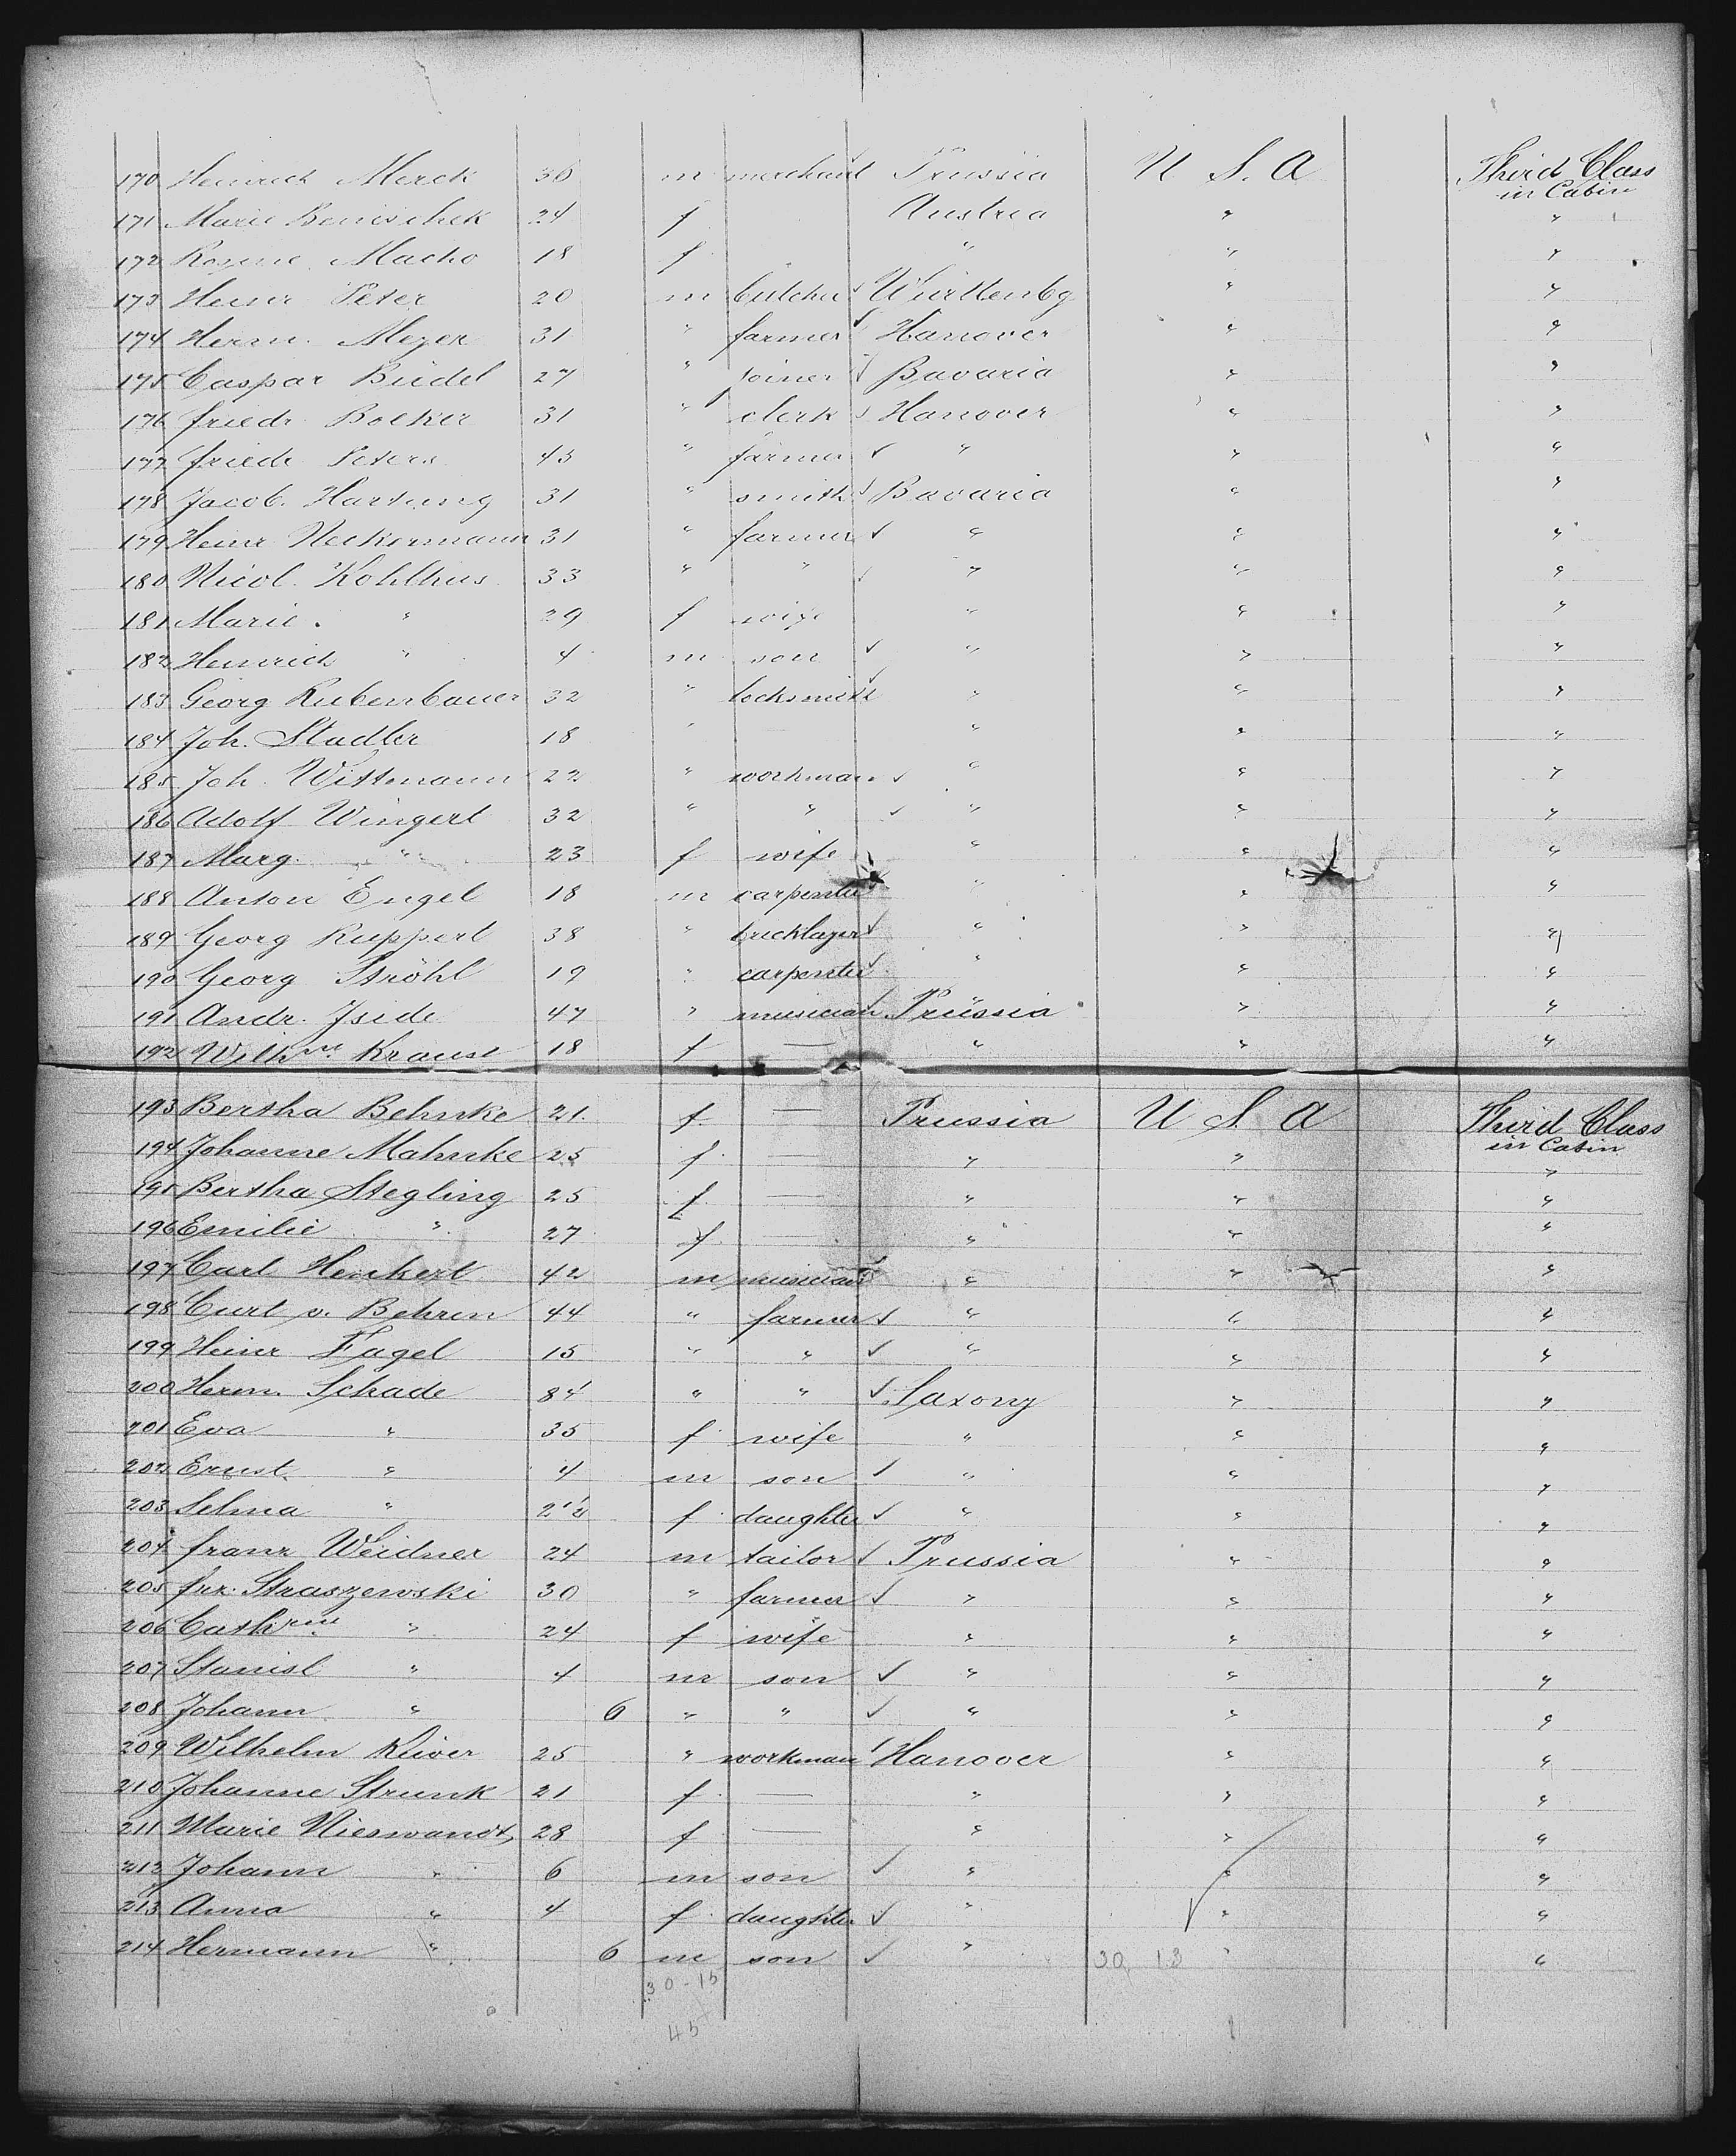 170 Heinrich Merck 36 m merchant Prussia U. S. A Third Class
in Cabin
171 Marie Benischek 24 f Austria " "
172 Rosine Macho 18 f " " "
173 Heinr Peter 20 m butcher Württenbg " "
174 Herm. Meyer 31 " farmer Hanover " "
175 Caspar Büdel 27 " Joiner Bavaria " "
176 Friedr. Boeker 31 " clerk Hanover " "
177 Friedr Peters 43 " farmer " " "
178 Jacob. Hartung 31 " smith Bavaria " "
179 Heinr Neckermann 31 " farmer " " "
180 Nicol. Kohlhus 33 " " " " "
181 Marie " 29 f wife " " "
182 Heinrich " 4 m son " " "
183 Georg Rubenbauer 32 " locksmith " " "
184 Joh. Stadler 18 " — " " "
185 Joh. Wittmann 22 " workman " " "
186 Adolf Wingert 32 " " " " "
187 Marg. " 23 f wife " " "
188 Anton Engel 18 m carpenter " " "
189 Georg Ruppert 38 " bricklayer " " "
190 Georg Ströhl 19 " carpenter " " "
191 Andr. Iside 47 " musician Prussia " "
192 Wilhne Kraust 18 f — " " "
193 Bertha Behnke 21. f. — Prussia U S. A Third Class
in Cabin
194 Johanne Mahnke 25 f. — " " "
195 Bertha Stegling 25 f. — " " "
196 Emilie " 27 f — " " "
197 Carl Henkert 42 m musician " " "
198 Curt v. Behren 44 " farmer " " "
199 Heinr Fagel 15 " " " " "
200 Herm. Schade 34 " " Saxony " "
201 Eva " 35 f wife " " "
202 Ernst " 4 m son " " "
203 Selma " 2 1/2 f daughter " " "
204 Franz Weidner 24 m tailor Prussia " "
205 Frz. Straszewski 30 " farmer " " "
206 Cathrne " 24 f wife " " "
207 Stanisl " 4 m son " " "
208 Johann " 6 " " " " "
209 WilhelmKüver 25 " workman Hanover " "
210 Johanne Strunk 21 f. — " " "
211 Marie Nieswandt 28 f — " " "
212 Johann " 6 m son " " "
213 Anna " 4 f. daughter " " "
214 Hermann " 6 m son " " "
30, 13
30-15
45